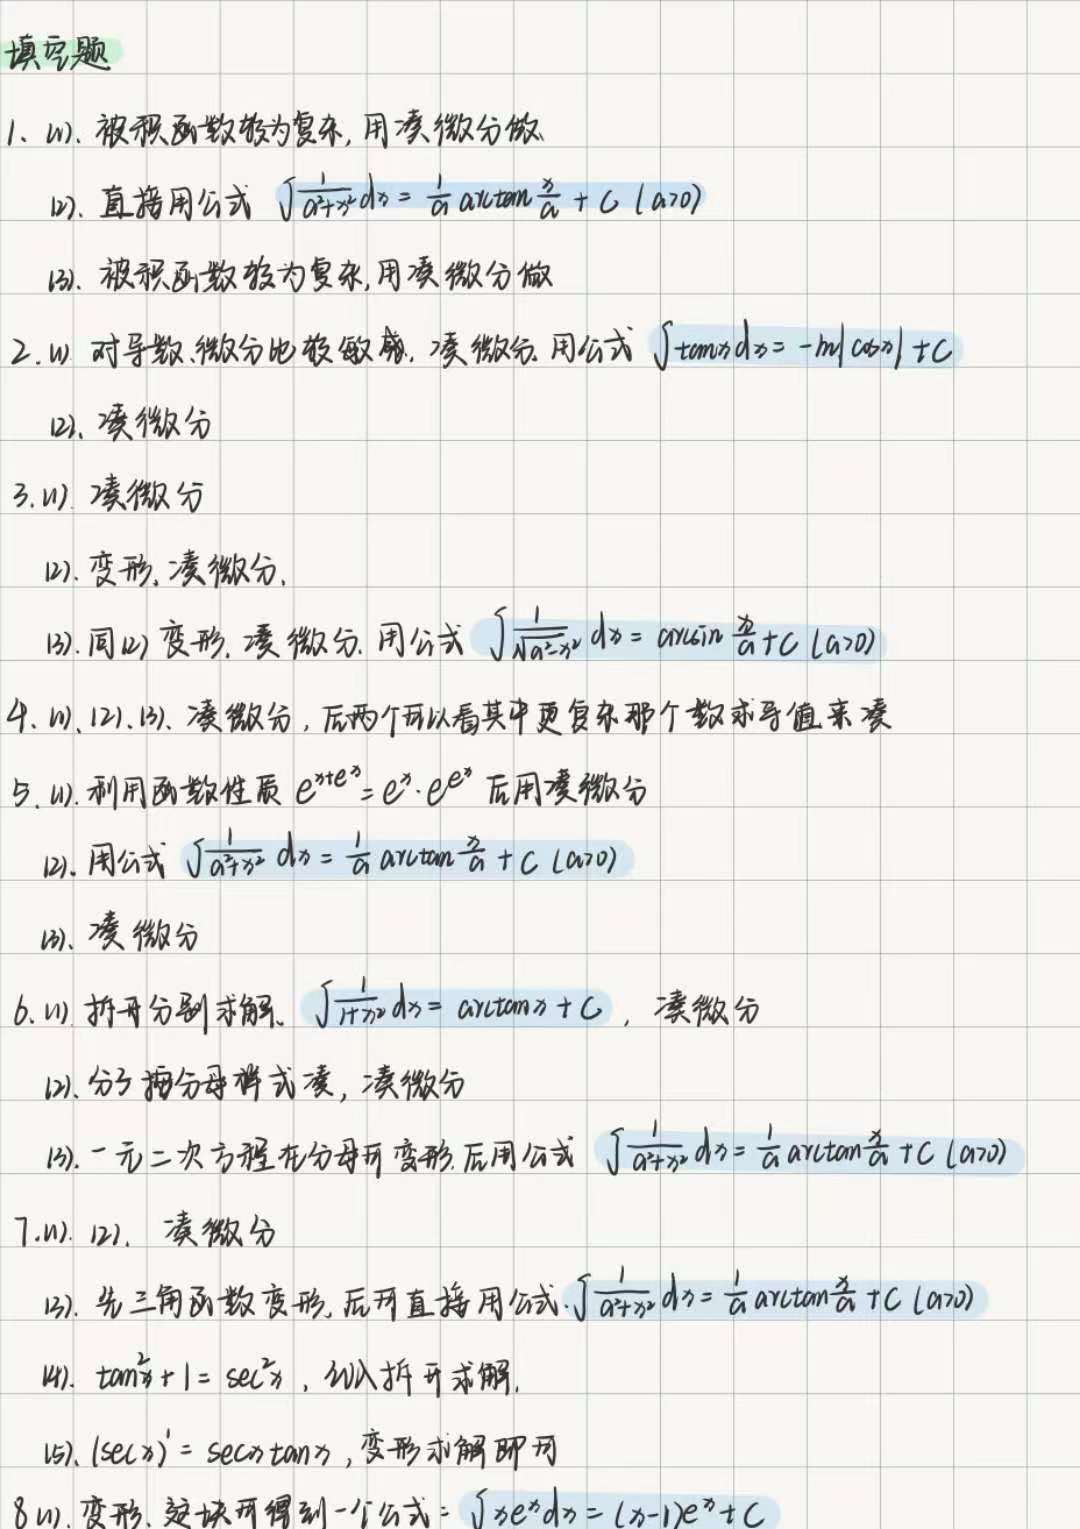 填空题
1. (1). 被积函数较为复杂, 用凑微分做
(2). 直接用公式 ∫1/(a²+x²) dx = 1/a arctan x/a + C (a>0)
(3). 被积函数较为复杂, 用凑微分做
2. (1) 对导数、微分比较敏感, 凑微分. 用公式 ∫tanx dx = -ln|cosx| + C
(2). 凑微分
3. (1). 凑微分
(2). 变形, 凑微分.
(3). 同(2) 变形, 凑微分. 用公式 ∫1/√(a²-x²) dx = arcsin x/a + C (a>0)
4. (1). (2). (3). 凑微分, 后两个可以看其中更复杂那个数求导值来凑
5. (1). 利用函数性质 e^(x+e^x) = e^x · e^(e^x) 后用凑微分
(2). 用公式 ∫1/(a²+x²) dx = 1/a arctan x/a + C (a>0)
(3). 凑微分
6. (1) 拆开分别求解. ∫1/(1+x²) dx = arctanx + C, 凑微分
(2). 分子按分母样式凑, 凑微分
(3). 一元二次方程在分母可变形, 后用公式 ∫1/(a²+x²) dx = 1/a arctan x/a + C (a>0)
7. (1). (2). 凑微分
(3). 先三角函数变形, 后可直接用公式. ∫1/(a²+x²) dx = 1/a arctan x/a + C (a>0)
(4). tan²x + 1 = sec²x, 代入拆开求解.
(5). (secx)' = secx tanx, 变形求解即可
8 (1). 变形. 这块可得到一个公式: ∫xe^x dx = (x-1)e^x + C